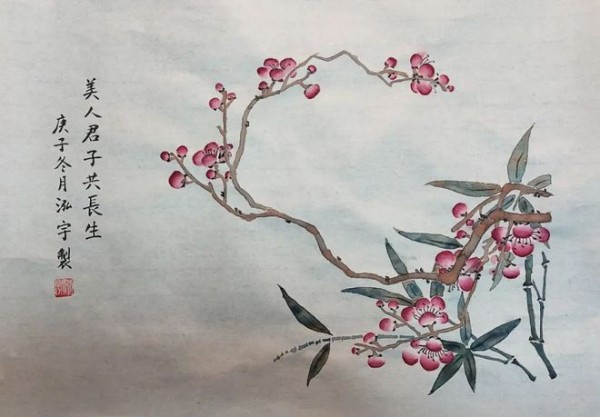 美人君子共長生
庚子冬月泓宇製